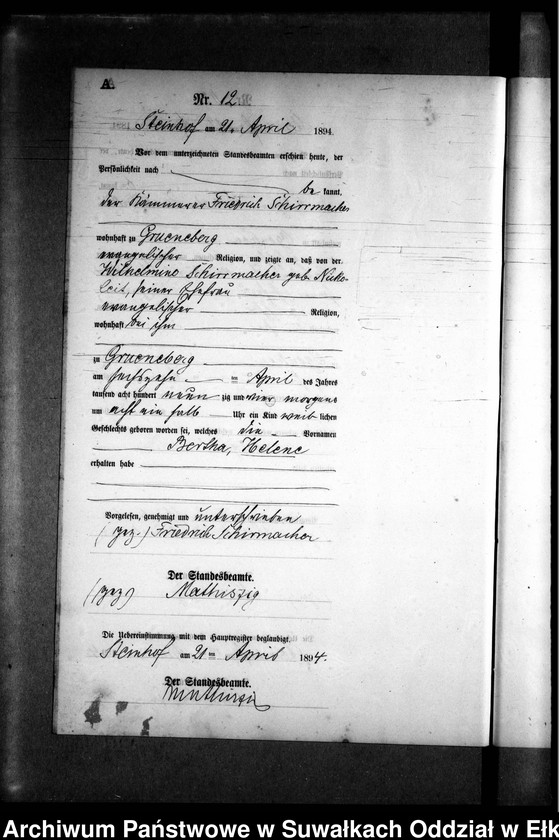 A.
Nr. 12.
Steinhof am 21. April 1894.
Vor dem unterzeichneten Standesbeamten erschien heute, der
Persönlichkeit nach
be kannt,
der Kämmerer Friedrich Schirrmacher
wohnhaft zu Grueneberg
evangelischer Religion, und zeigte an, daß von der
Wilhelmine Schirrmacher geb. Nicko-
leit, seiner Ehefrau
evangelischer Religion,
wohnhaft bei ihm
zu Grueneberg
am sechszehn ten April des Jahres
tausend acht hundert neun zig und vier morgens
um acht ein halb Uhr ein Kind weib lichen
Geschlechts geboren worden sei, welches die Vornamen
Bertha, Helene
erhalten habe
Vorgelesen, genehmigt und unterschrieben
(gez.) Friedrich Schirmacher
Der Standesbeamte.
(gez) Mathiszig
Die Uebereinstimmung mit dem Hauptregister beglaubigt.
Steinhof am 21 ten April 1894.
Der Standesbeamte.
Mathiszig
Archiwum Państwowe w Suwałkach Oddział w Ełk